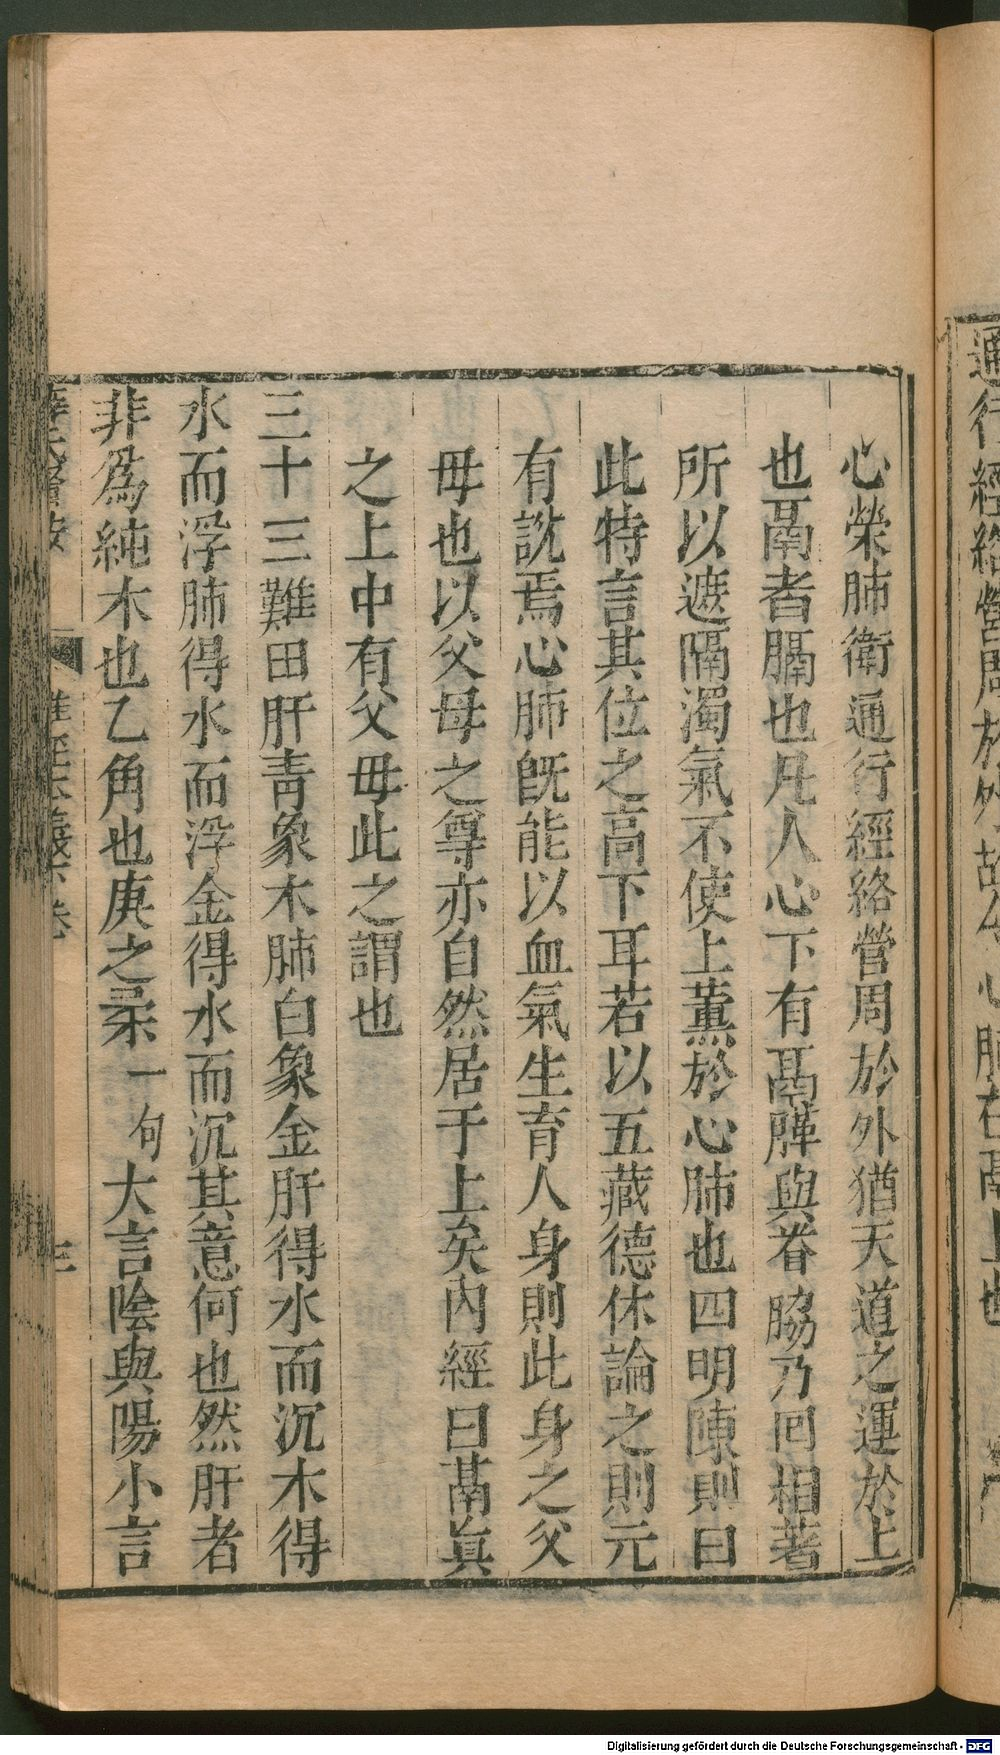 心榮肺衛通行經絡營周於外猶天道之運於上
也鬲者膈也凡人心下有鬲膜與脊脇乃回相著
所以遮隔濁氣不使上薰於心肺也四明陳則曰
此特言其位之高下耳若以五藏德休論之則元
有說焉心肺旣能以血氣生育人身則此身之父
母也以父母之尊亦自然居于上矣內經曰鬲眞
之上中有父母此之謂也
三十三難田肝青象木肺白象金肝得水而沉木得
水而浮肺得水而浮金得水而沉其意何也然肝者
非爲純木也乙角也庚之柔一句大言陰與陽小言
三
Digitalisierung gefördert durch die Deutsche Forschungsgemeinschaft - DFG